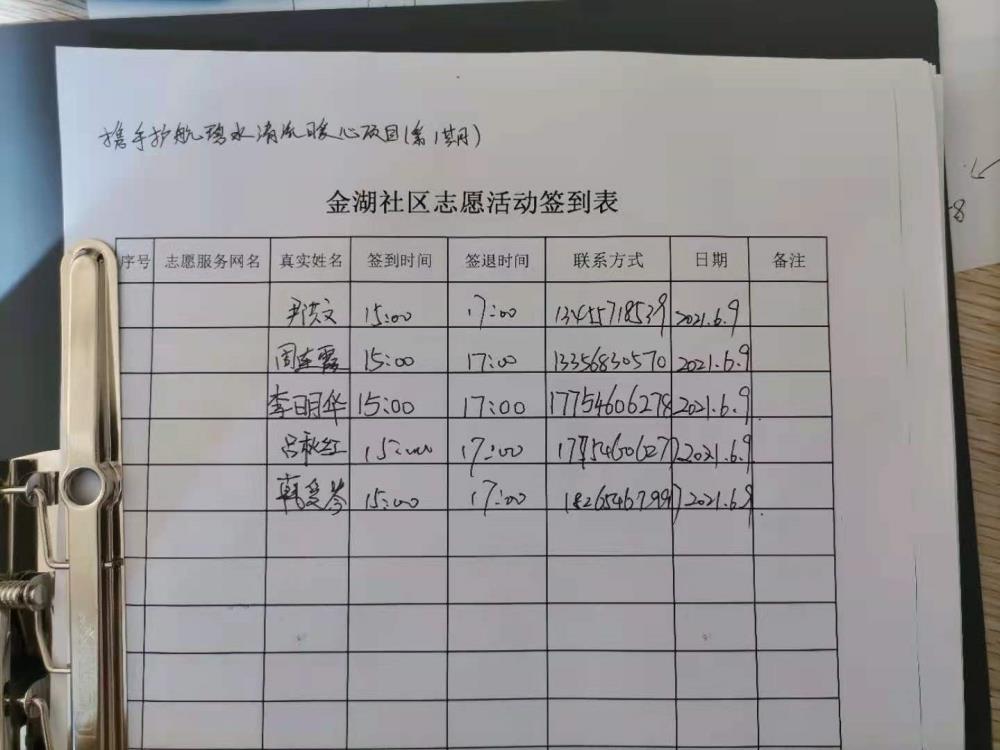 携手护航碧水清流暖心项目(第1期)
金湖社区志愿活动签到表
序号 志愿服务网名 真实姓名 签到时间 签退时间 联系方式 日期 备注
尹洪文 15:00 17:00 13455718539 2021.6.9
周连霞 15:00 17:00 13356830570 2021.6.9
李明华 15:00 17:00 17754606278 2021.6.9
吕秋红 15:00 17:00 2021.6.9
韩爱岑 15:00 17:00 18265467997 2021.6.9
-8